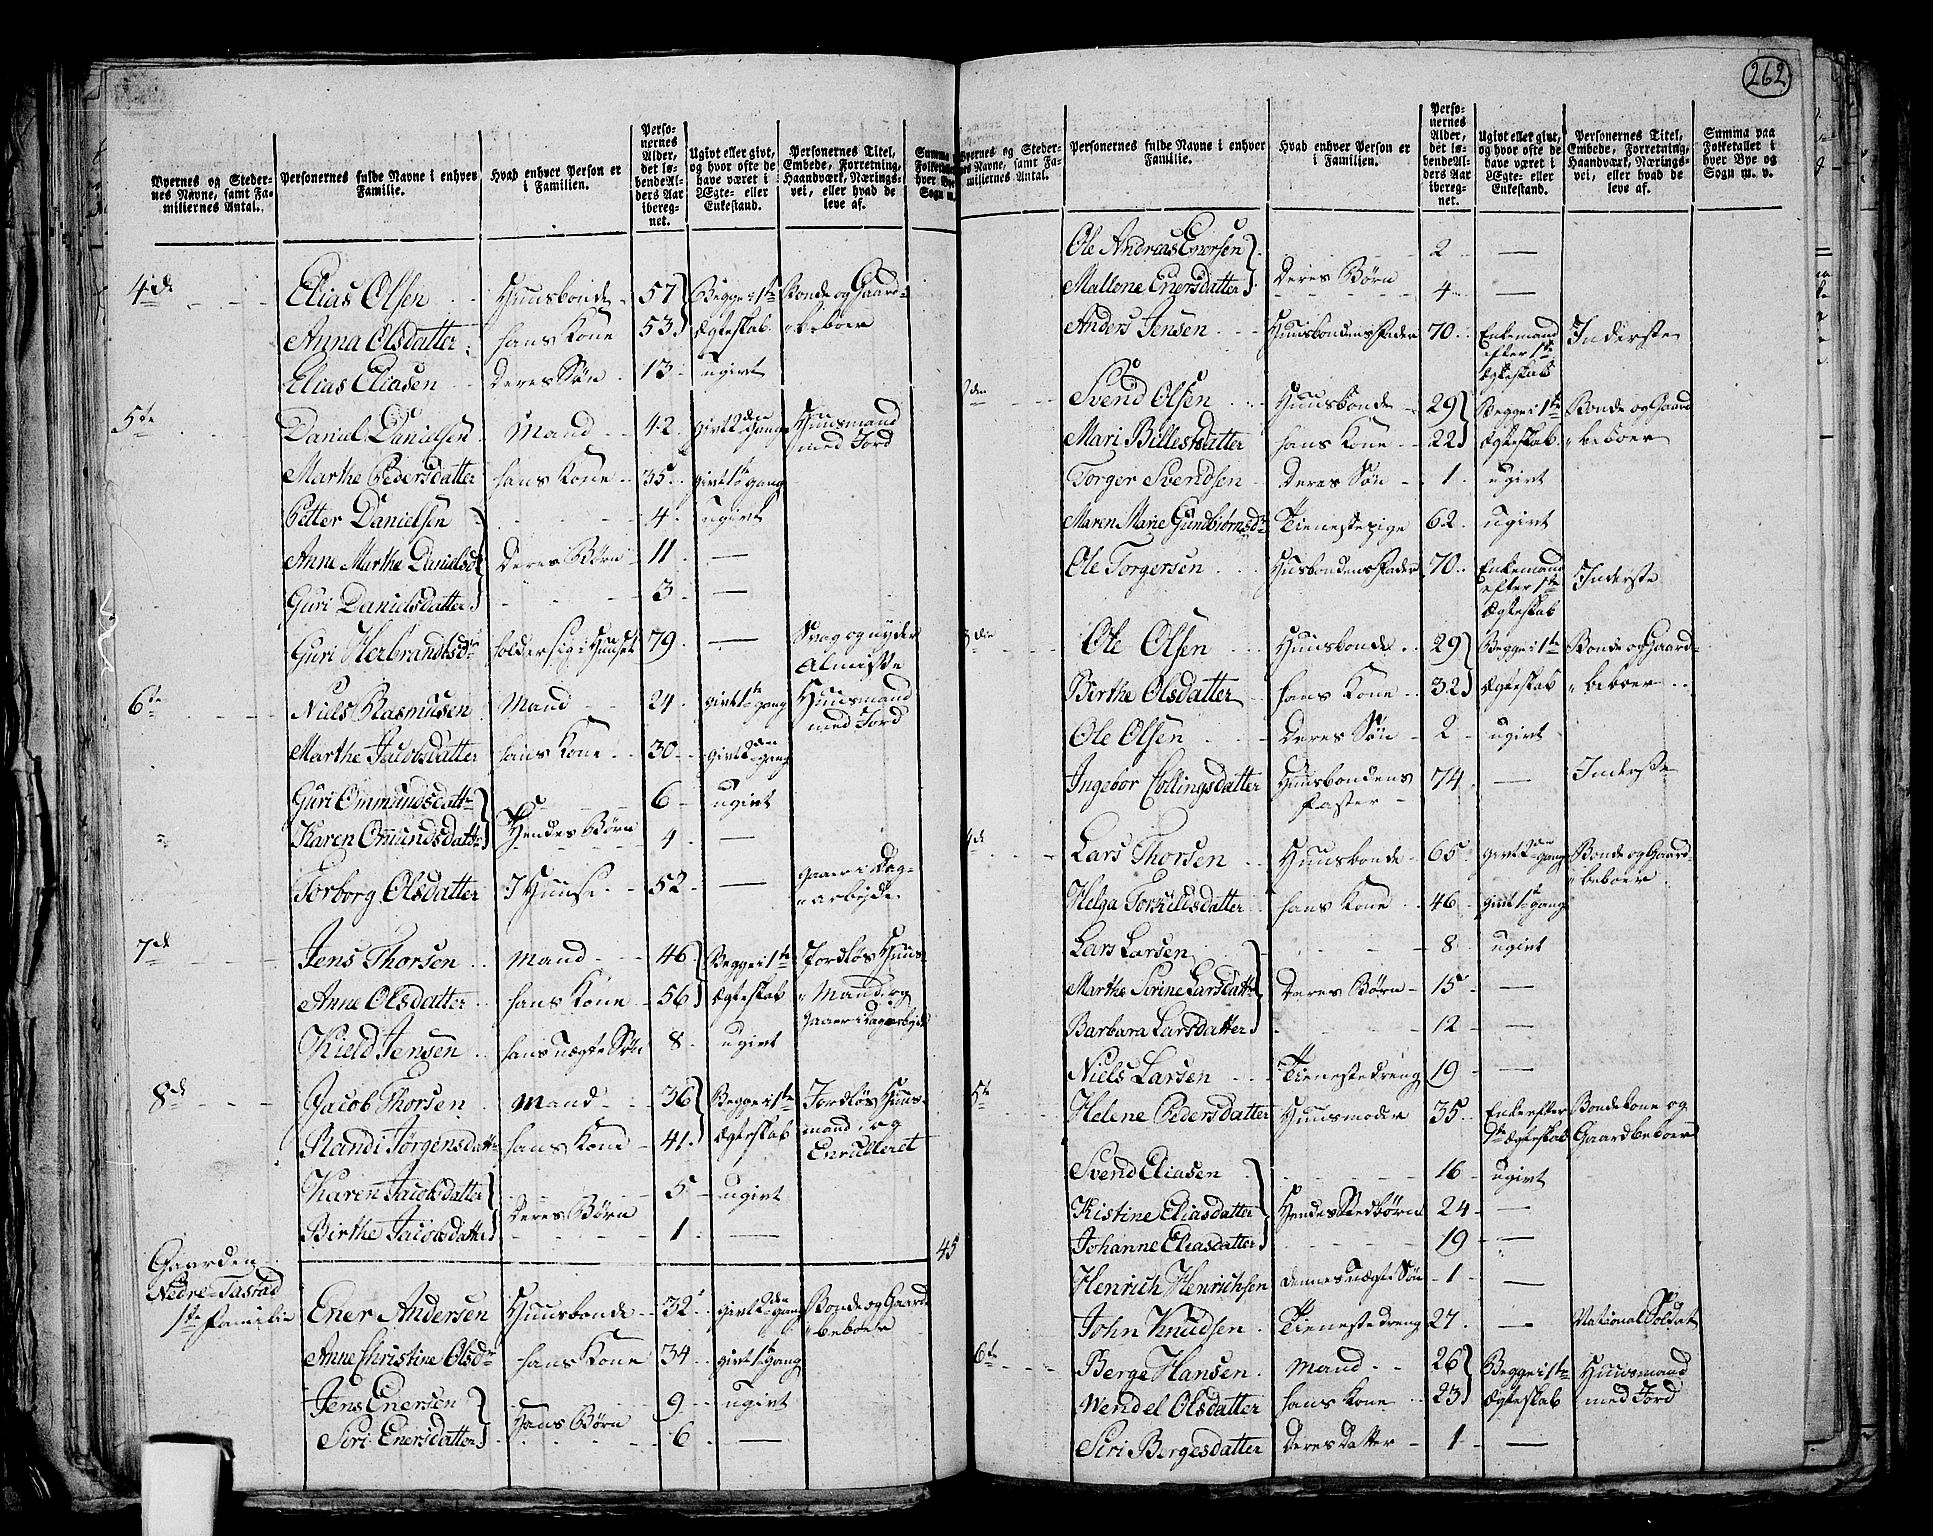 262
Byernes og Stedernes Navne, samt Familiernes Antal.
Personernes fulde Navne i enhver Familie.
Hvad enhver Person er i Familien.
Personernes Alder, det løbende Alders Aar iberegnet.
Ugivt eller givt, og hvor ofte de have været i Ægte- eller Enkestand.
Personernes Titel, Embede, Forretning, Haandværk, Næringsvei, eller hvad de leve af.
4de Elias Olsen Huusbonde 57 Begge i 1te Bonde og Gaard-
Anna Olsdatter hans Kone 53 Ægteskab beboer
Elias Eliasen Deres Søn 13 ugivt
5te Daniel Danielsen Mand 42 givt 2den Gang Huusmand med Jord
Marthe Pedersdatter hans Kone 35 givt 1te gang
Petter Danielsen 4 ugivt
Anne Marthe Danielsd. Deres Børn 11 —
Guri Danielsdatter 3 —
Guri Herbrandtsdr. holder sig i Huuset 79 — Svag og nyder Almisse
6te Niels Rasmusen Mand 24 givt 1te gang Huusmand med Jord
Marthe Jacobsdatter hans Kone 30 givt 2den gang
Guri Ommundsdattr 6 ugivt
Karen Omundsdattr Hendes Børn 4 —
Torborg Olsdatter I Huuse 52 — Gaaer i Dag-arbeyde
7de Jens Thorsen Mand 46 Begge i 1te Jordløs Huus-
Anne Olsdatter hans Kone 56 Ægteskab Mand, og Gaaer i Dagarbeyde
Kield Jensen hans uægte Søn 8 ugivt
8de Jacob Thorsen Mand 36 Begge i 1te Jordløs Huus-
Randi Jørgensdattr hans Kone 41 Ægteskab mand, og Enrulleret
Karen Jacobsdatter 5 ugivt
Deres Børn
Birthe Jacobsdatter 1 —
45
Gaarden
Nedre
1te Familie Ener Andersen Huusbonde 32 givt 2den gang Bonde og Gaard-beboer
Anne Christine Olsdr. hans Kone 34 givt 1te Gang
Jens Enersen 9 ugivt
Hans Børn
Siri Enersdatter 6 —
Byernes og Stedernes Navne, samt Familiernes Antal.
Personernes fulde Navne i enhver Familie.
Hvad enhver Person er i Familien.
Personernes Alder, det løbende Alders Aar iberegnet.
Ugivt eller givt, og hvor ofte de have været i Ægte- eller Enkestand.
Personernes Titel, Embede, Forretning, Haandværk, Næringsvei, eller hvad de leve af.
Summa paa Folketallet i hver Bye og Sogn m. v.
Ole Andreas Enersen 2 —
Deres Børn
Mallene Enersdatter 4 —
Anders Jensen Huusbondens Fader 70 Enkemand efter 1te Ægteskab Inderste
Svend Olsen Huusbonde 29 Begge i 1te Bonde og Gaard
Mari Billesdatter hans Kone 22 Ægteskab beboer
Torger Svendsen Deres Søn 1 ugivt
Maren Marie Gundbiørnsdr. Tienestepige 62 ugivt
Ole Torgersen Husbondens Fader 70 Enkemand efter 1te Ægteskab Inderste
Ole Olsen Huusbonde 29 Begge i 1te Bonde og Gaard-
Birthe Olsdatter hans Kone 32 Ægteskab beboer
Ole Olsen Deres Søn 2 ugivt
Ingebor Collingsdatter Huusbondens Faster 74 — Inderste
4de Lars Thorsen Huusbonde 65 givt 2den gang Bonde og Gaard-beboer
Helga Torkildsdatter hans Kone 46 givt 1te gang
Lars Larsen 8 ugivt
Marthe Serine Larsdattr Deres Børn 15 —
Barbara Larsdatter 12 —
Niels Larsen Tienestedreng 19 —
5te Helene Pedersdatter Huusmoder 35 Enke efter 1te Ægteskab Bondekone og Gaardbeboer
Svend Eliasen 16 ugivt
Kistine Eliasdatter Hendes Stedbørn 24 —
Johanne Eliasdatter 19 —
Henrich Henrichsen dennes uægte Søn 1 —
John Knudsen Tienestedreng 27 — National Soldat
6te Berge Hansen Mand 26 Begge i 1te Huusmand
Wendel Olsdatter hans Kone 23 Ægteskab med Jord
Siri Bergesdatter Deres Datter 1 —